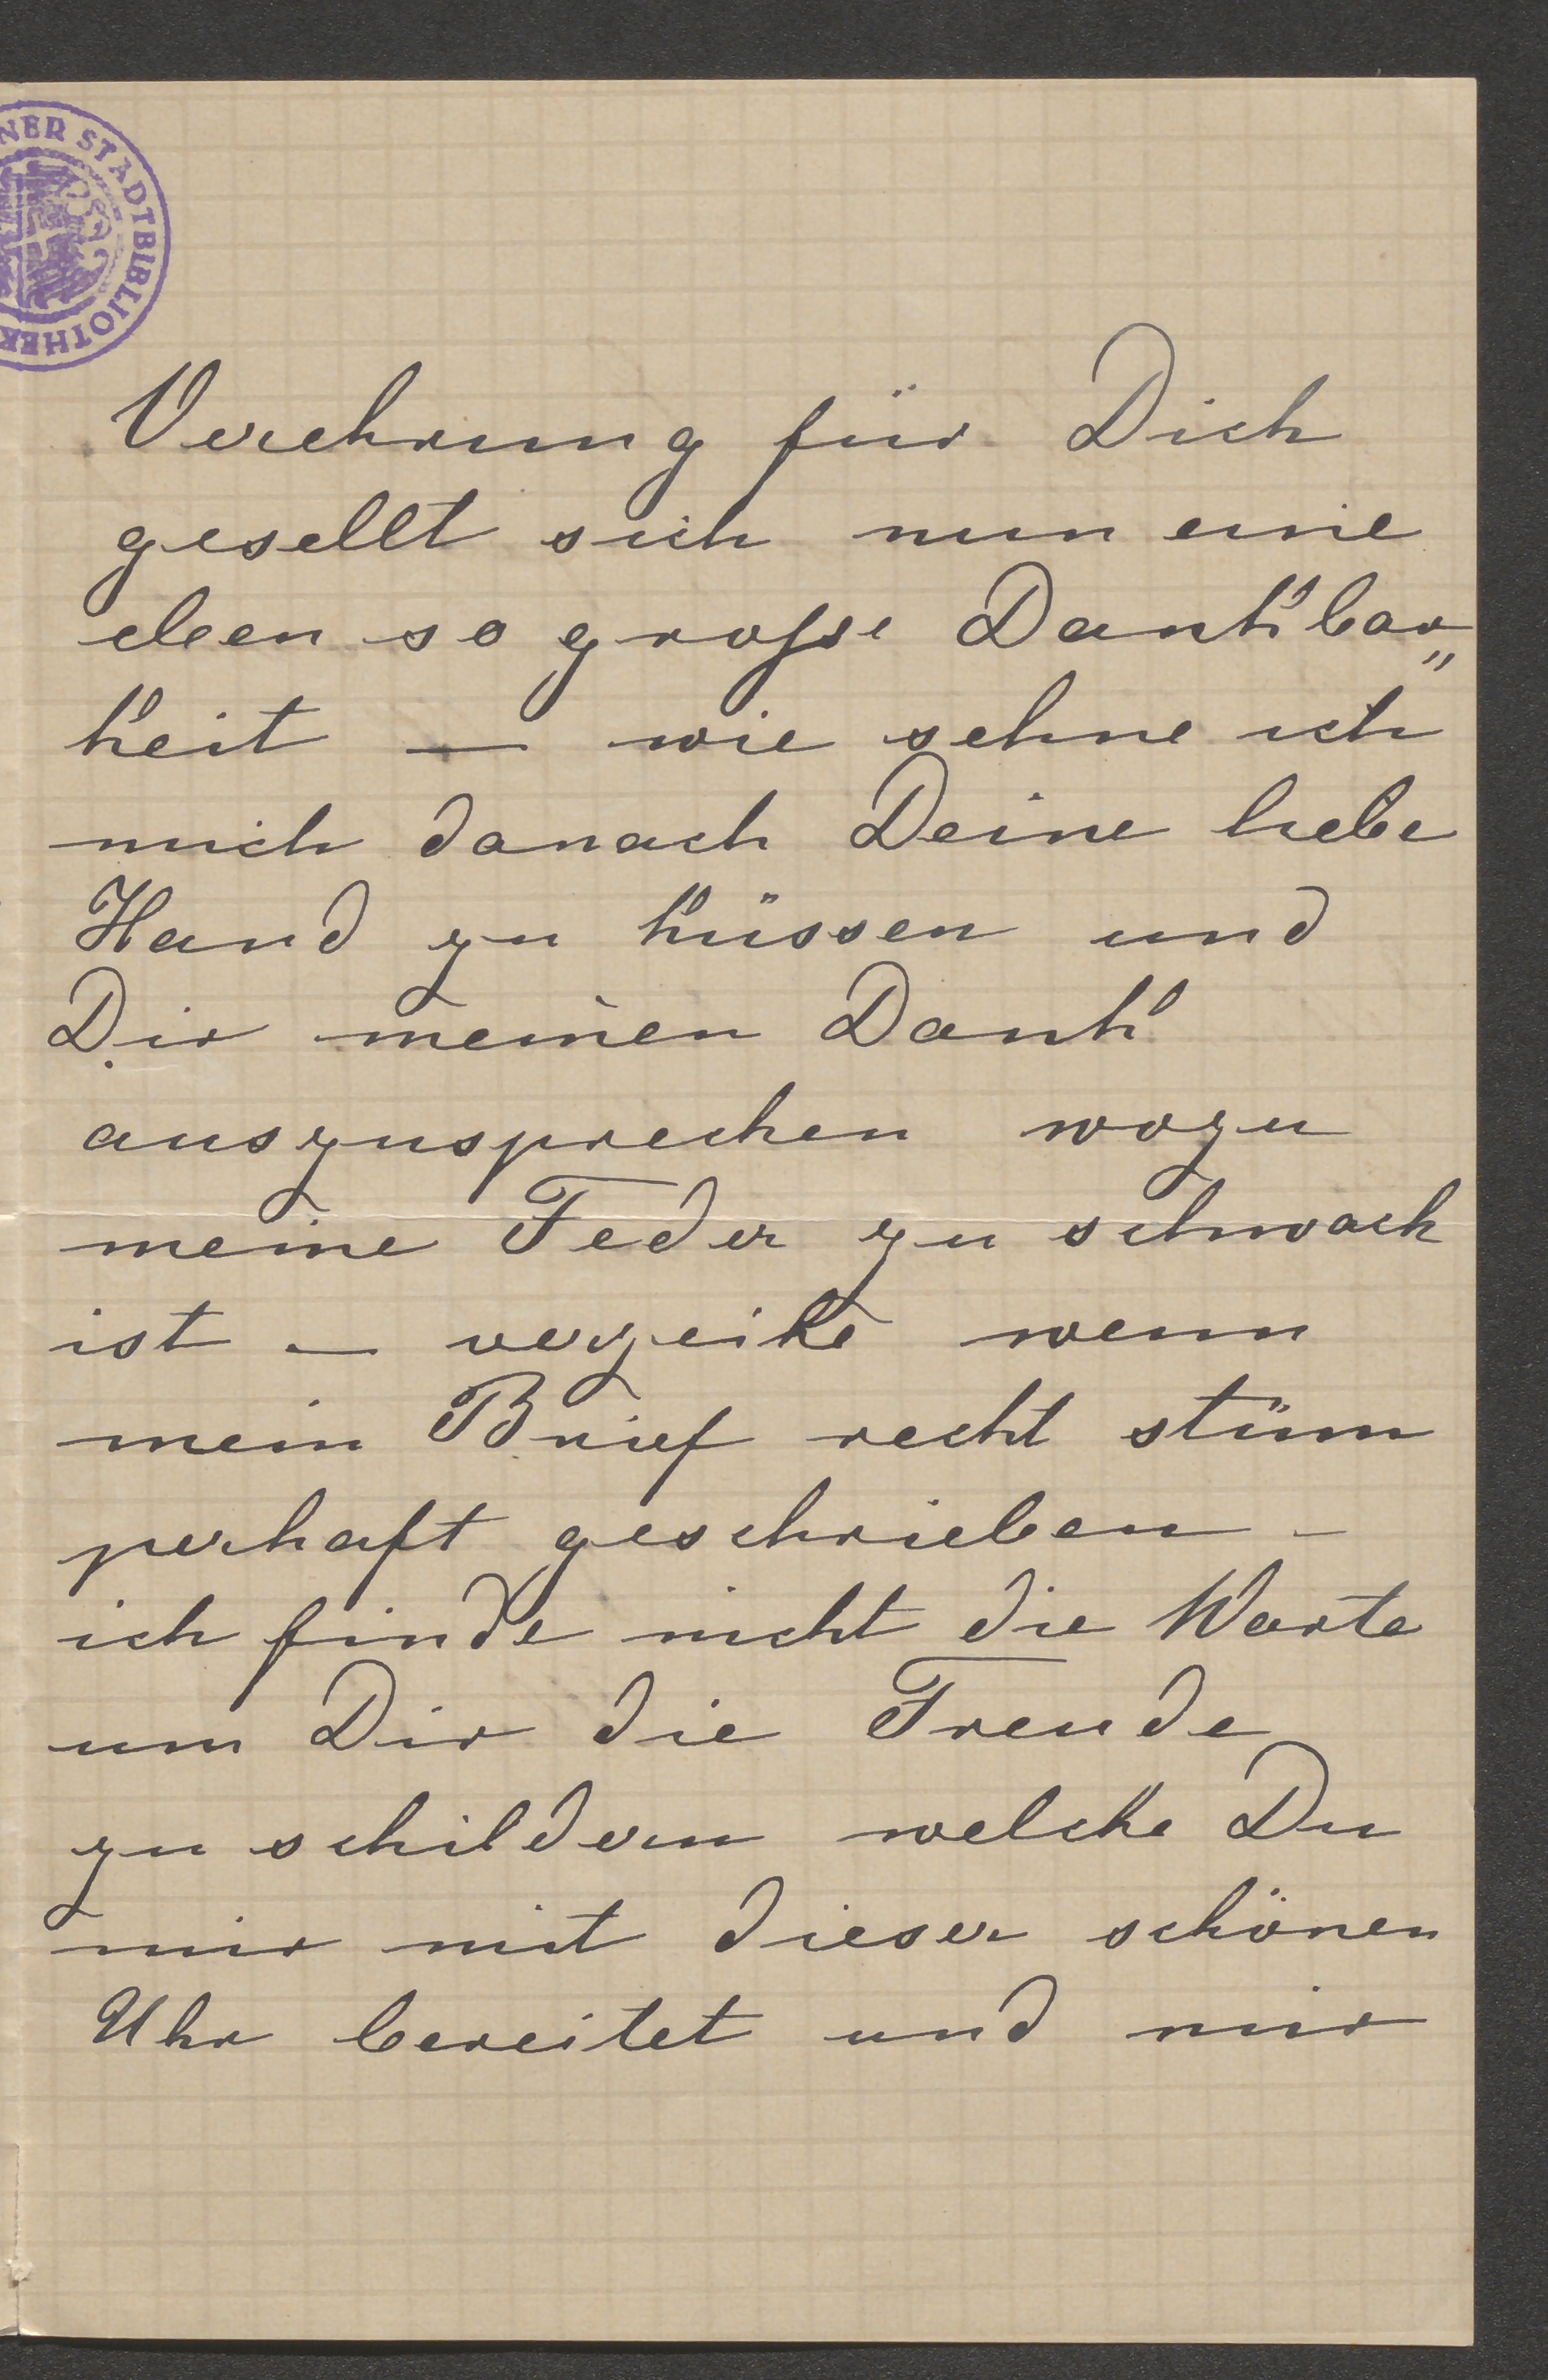 NER STADTBIBLIOTHEK
Verehrung für Dich
gesellt sich nun eine
eben so große Dankbar„
keit — wie sehne ich
mich danach Deine liebe
Hand zu küssen und
Dir meinen Dank
auszusprechen wozu
meine Feder zu schwach
ist — verzeihe wenn
mein Brief recht stüm
perhaft geschrieben –
ich finde nicht die Worte
um Dir die Freude
zu schildern welche Du
mir mit dieser schönen
Uhr bereitet und mir